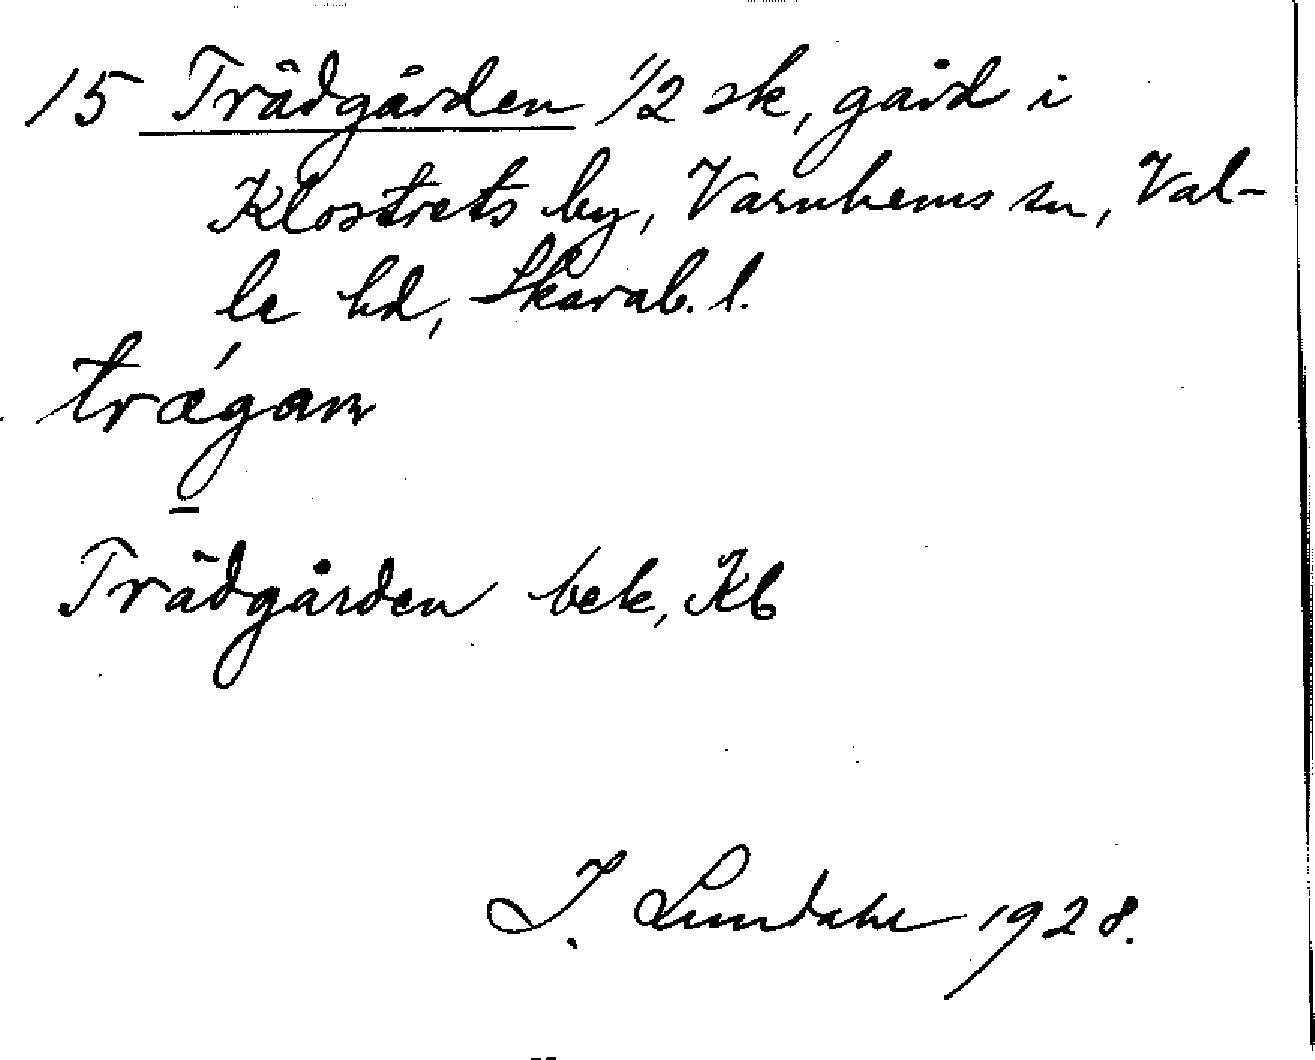 15 Trädgården 1/2 sk, gård i
Klostrets by, Varnhems sn, Val-
le hd, Skarab. l.
trægan
Trädgården bek, Kb
I. Lundahl 1928.